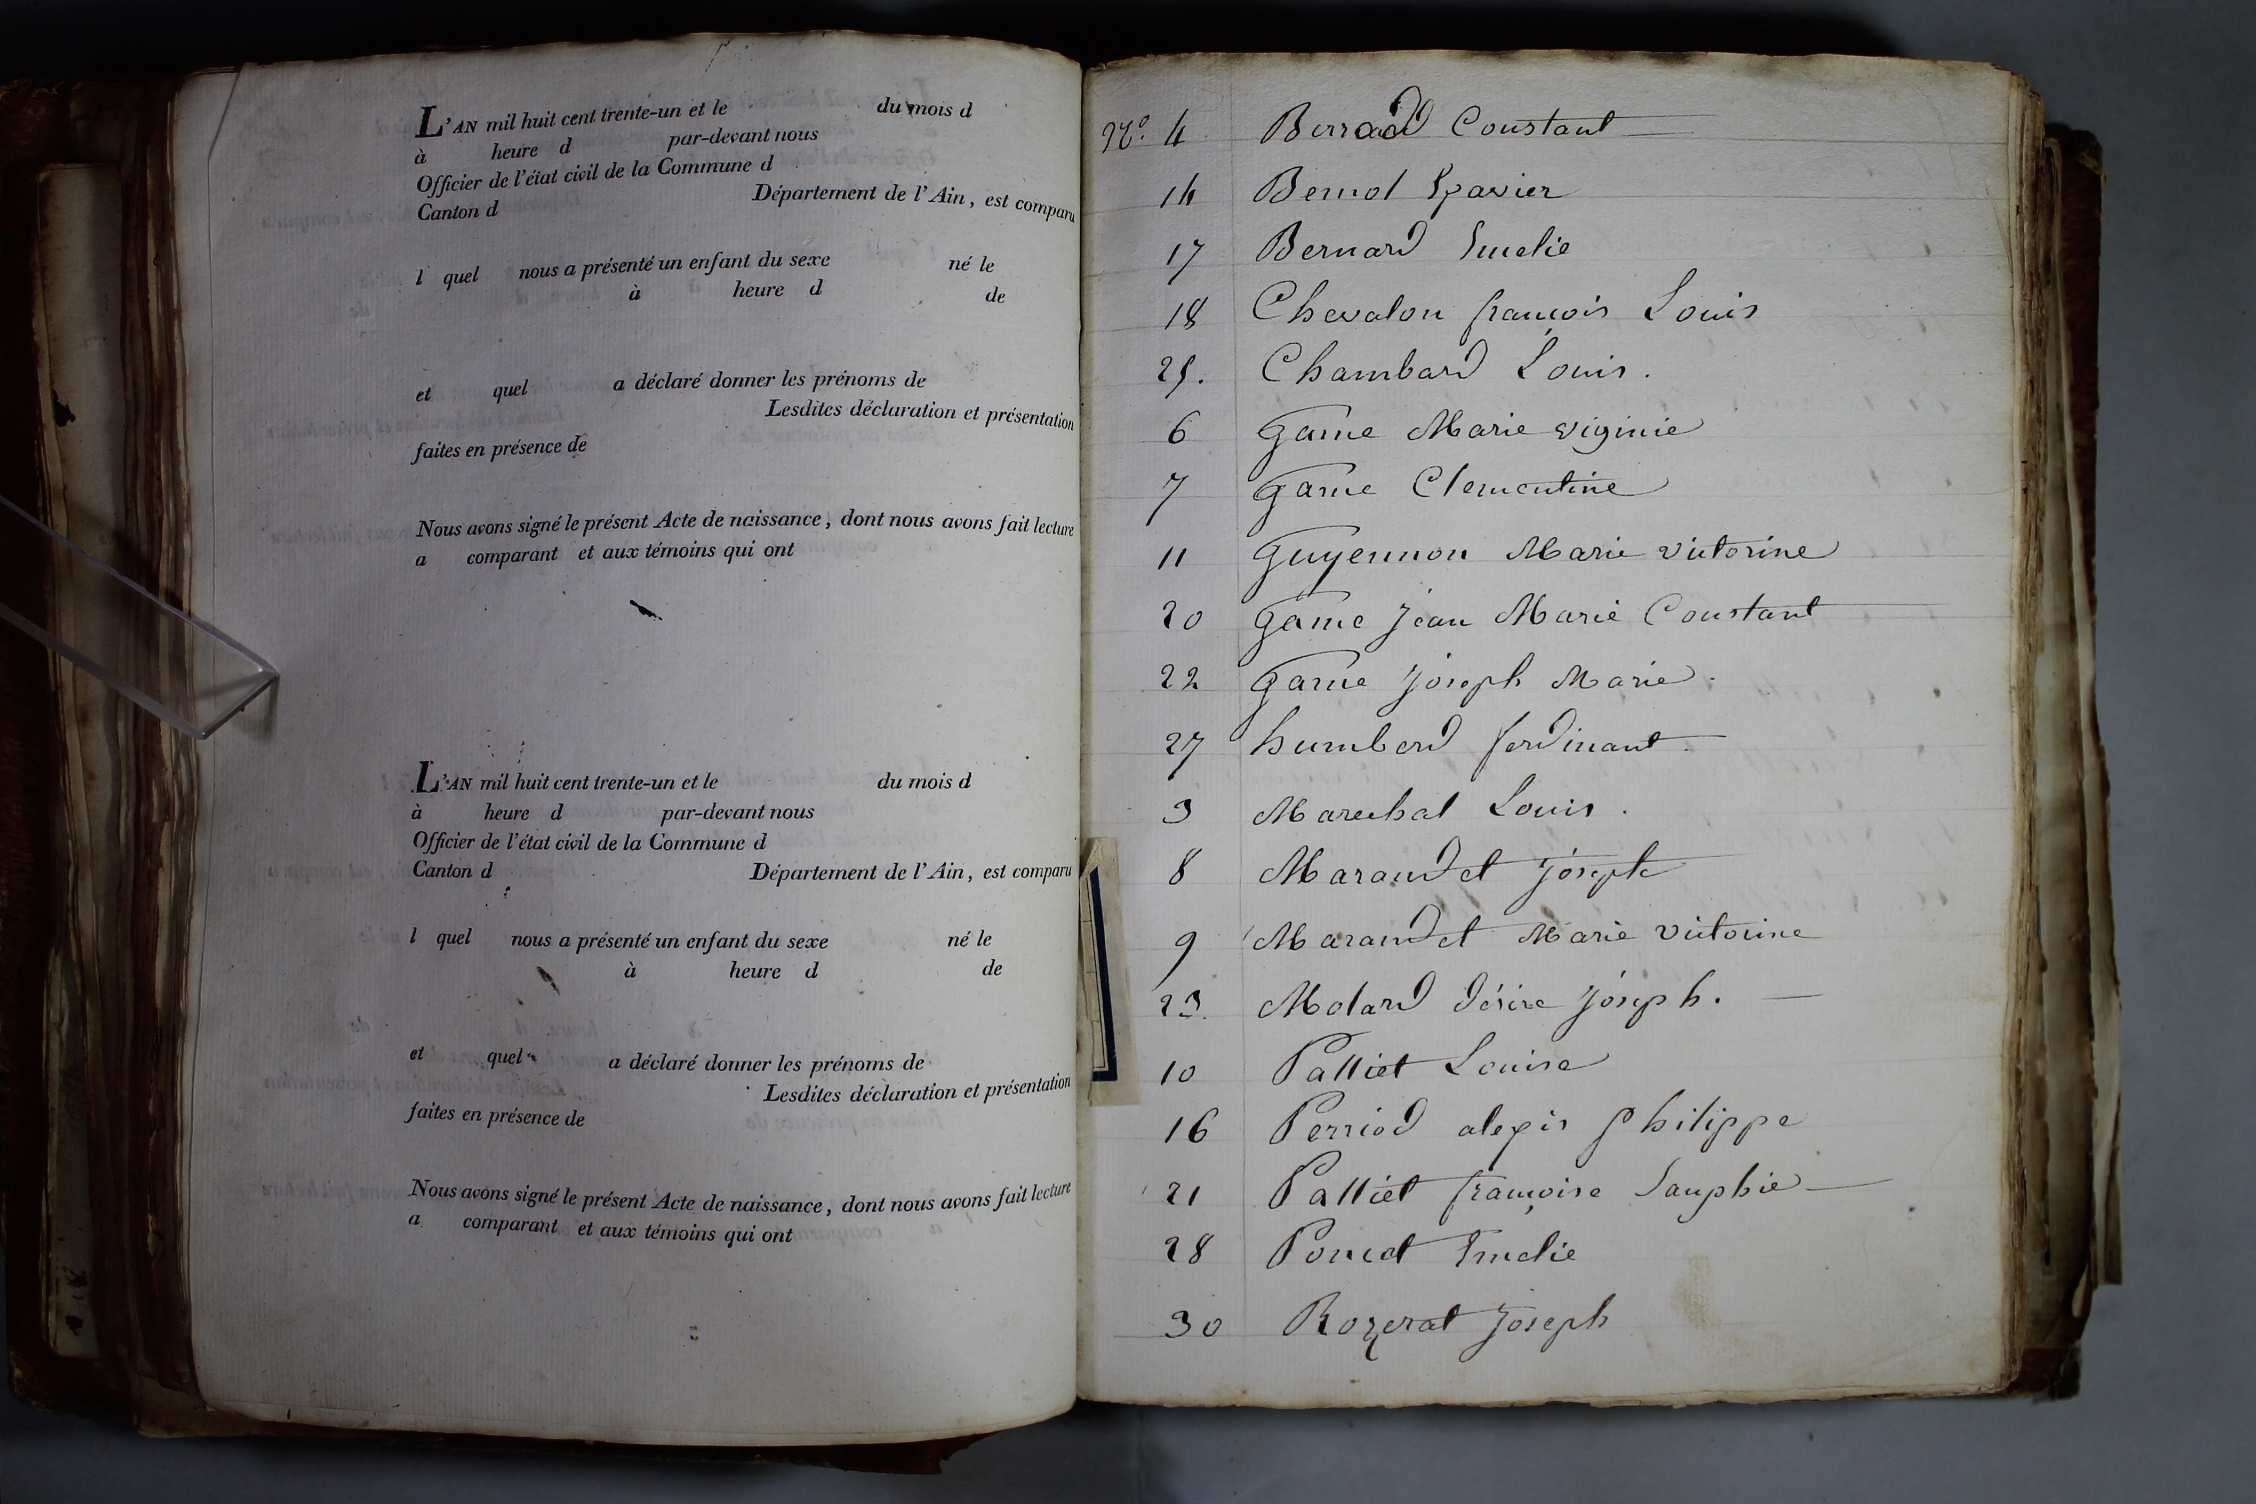 L'AN mil huit cent trente-un et le du mois d
à heure d par-devant nous
Officier de l'état civil de la Commune d
Canton d Département de l'Ain, est comparu
l quel nous a présenté un enfant du sexe né le
à heure d de
et quel a déclaré donner les prénoms de
Lesdites déclaration et présentation
faites en présence de
Nous avons signé le présent Acte de naissance, dont nous avons fait lecture
a comparant et aux témoins qui ont
L'AN mil huit cent trente-un et le du mois d
à heure d par-devant nous
Officier de l'état civil de la Commune d
Canton d Département de l'Ain, est comparu
l quel nous a présenté un enfant du sexe né le
à heure d de
et quel a déclaré donner les prénoms de
Lesdites déclaration et présentation
faites en présence de
Nous avons signé le présent Acte de naissance, dont nous avons fait lecture
a comparant et aux témoins qui ont
No. 4 Constant
14 Xavier
17 Bernard Emelie
18 Chevalon françois Louis
25. Chambard Louis.
6 game Marie virginie
7 game Clementine
11 guyennon Marie victorine
20 game jean Marie Constant
22 game joseph Marie.
27 humberd ferdinant
3 Marechal Louis.
8 Maraudet joseph
9 Maraudet Marie victorine
23. Molard désire joseph.
10 Palliet Louise
16 Perriod alexis philippe
21 Palliet françoise Sauphie
28 Poncet Emelie
30 Rozerat joseph